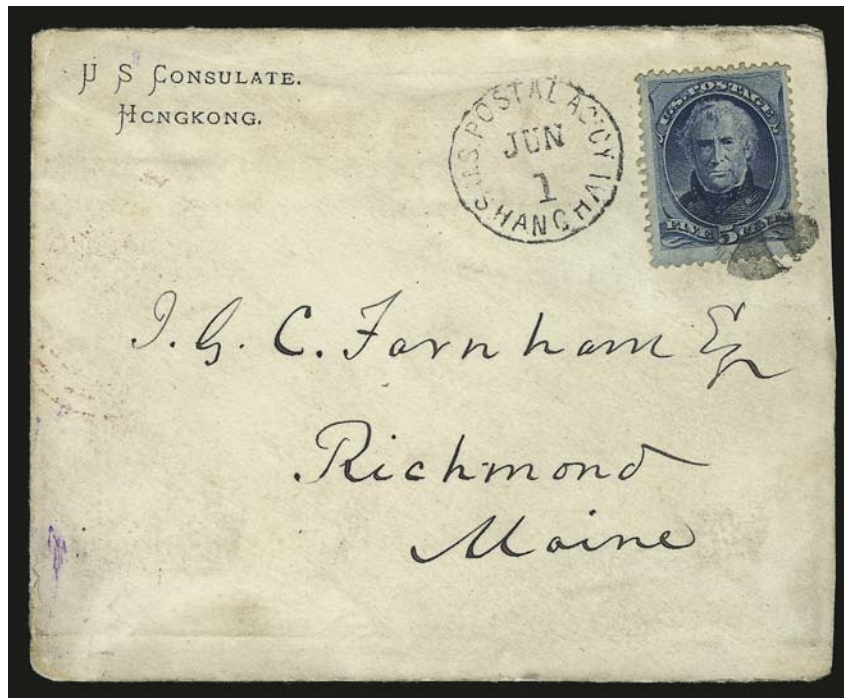 U S CONSULATE.
HONGKONG.
U.S. POSTAL AGCY
JUN
1
SHANGHAI
U.S. POSTAGE
FIVE 5 CENTS
J. G. C. Farnham Eq
Richmond
Maine